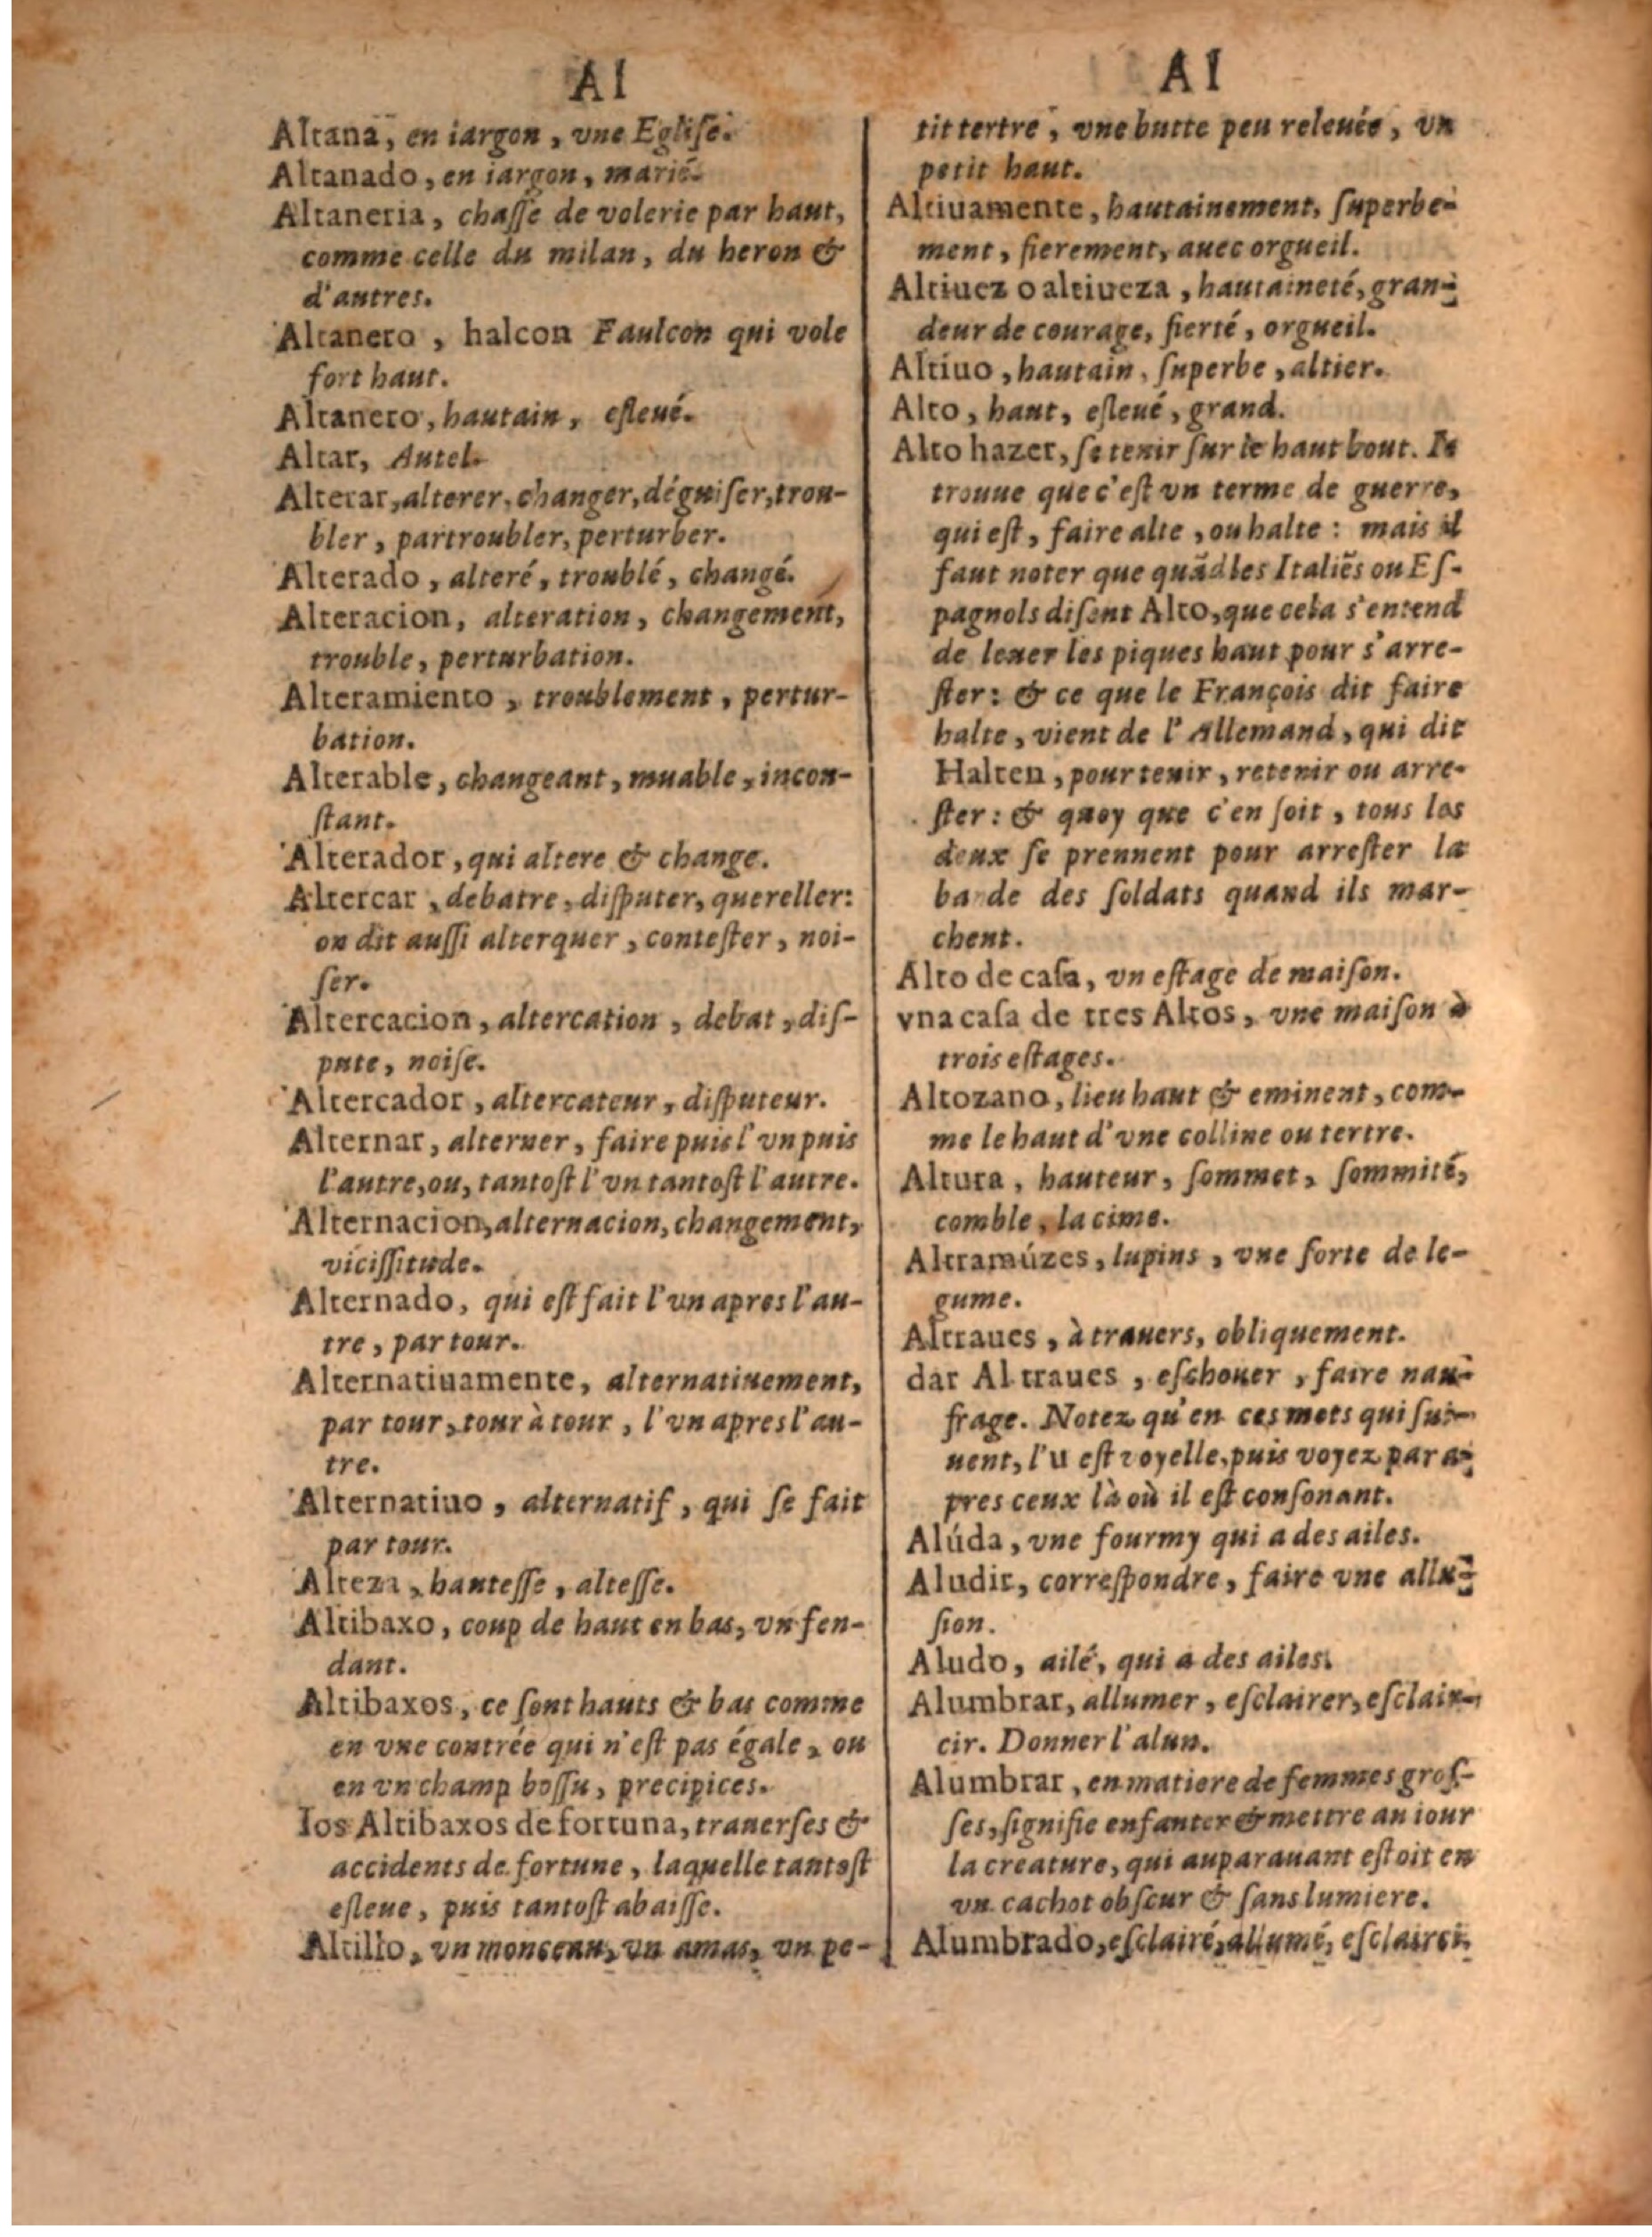 Al
Altana, en iargon, vne Egliſe.
Altanado, en iargon, marié.
Altaneria, chaſſe de volerie par haut,
comme celle du milan, du heron &
d'autres.
Altanero, halcon Faulcon qui vole
fort haut.
Altanero, hautain, eſleué.
Altar, Autel.
Alterar, alterer, changer, déguiſer, trou-
bler, partroubler, perturber.
Alterado, alteré, troublé, changé.
Alteracion, alteration, changement,
trouble, perturbation.
Alteramiento, troublement, pertur-
bation.
Alterable, changeant, muable, incon-
ſtant.
Alterador, qui altere & change.
Altercar, debatre, diſputer, quereller:
on dit auſſi alterquer, conteſter, noi-
ſer.
Altercacion, altercation, debat, diſ-
pute, noiſe.
Altercador, altercateur, diſputeur.
Alternar, alterner, faire puis l'vn puis
l'autre, ou, tantoſt l'vn tantoſt l'autre.
Alternacion, alternacion, changement,
viciſſitude.
Alternado, qui eſt fait l'un apres l'au-
tre, par tour.
Alternatiuamente, alternatiuement,
par tour, tour à tour, l'vn apres l'au-
tre.
Alternatiuo, alternatif, qui ſe fait
par tour.
Alteza, hauteſſe, alteſſe.
Altibaxo, coup de haut en bas, vn fen-
dant.
Altibaxos, ce ſont hauts & bas comme
en vne contrée qui n'eſt pas égale, ou
en vn champ boſſu, precipices.
los Altibaxos de fortuna, trauerſes &
accidents de fortune, laquelle tantoſt
eſleue, puis tantoſt abaiſſe.
Altillo, vn monceau, vn amas, vn pe-
Al
tit tertre, vne butte peu releuée, vn
petit haut.
Altiuamente, hautainement, ſuperbe-
ment, fierement, auec orgueil.
Altiuez o altiueza, hautaineté, gran-
deur de courage, fierté, orgueil.
Altiuo, hautain, ſuperbe, altier.
Alto, haut, eſleué, grand.
Alto hazer, ſe tenir ſur le haut bout. Ie
trouue que c'eſt vn terme de guerre,
qui eſt, faire alte, ou halte: mais il
faut noter que quãd les Italiẽs ou Eſ-
pagnols diſent Alto, que cela s'entend
de leuer les piques haut pour s'arre-
ſter: & ce que le François dit faire
halte, vient de l'Allemand, qui dit
Halten, pour tenir, retenir ou arre-
ſter: & quoy que c'en ſoit, tous les
deux ſe prennent pour arreſter la
bande des ſoldats quand ils mar-
chent.
Alto de caſa, vn eſtage de maiſon.
vna caſa de tres Altos, vne maiſon à
trois eſtages.
Altozano, lieu haut & eminent, com-
me le haut d'vne colline ou tertre.
Altura, hauteur, ſommet, ſommité,
comble, la cime.
Altramúzes, lupins, vne ſorte de le-
gume.
Altraues, à trauers, obliquement.
dar Al traues, eſchouer, faire nau-
frage. Notez qu'en ces mots qui ſui-
uent, l'u eſt voyelle, puis voyez par a-
pres ceux là où il eſt conſonant.
Alúda, vne fourmy qui a des ailes.
Aludir, correſpondre, faire vne allu-
ſion.
Aludo, ailé, qui a des ailes.
Alumbrar, allumer, eſclairer, eſclair-
cir. Donner l'alun.
Alumbrar, en matiere de femmes groſ-
ſes, ſignifie enfanter & mettre au iour
la creature, qui auparauant eſtoit en
vn cachot obſcur & ſans lumiere.
Alumbrado, eſclairé, allumé, eſclairci.